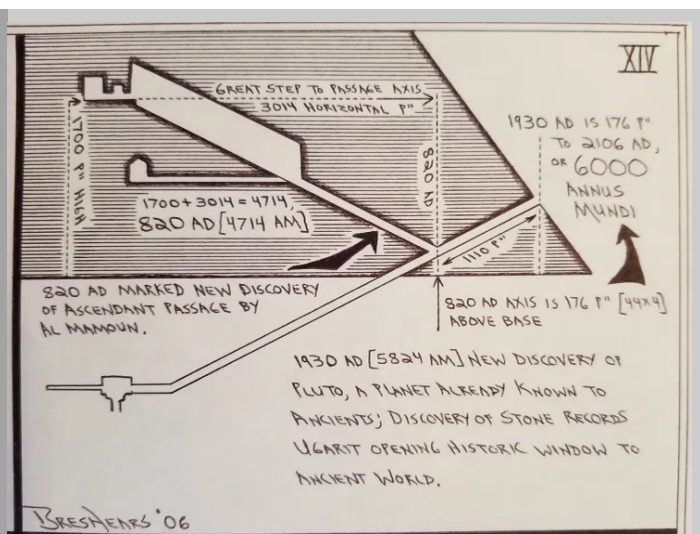 XIV
GREAT STEP TO PASSAGE AXIS
3014 HORIZONTAL P"
1700 P" HIGH
820 AD
1930 AD IS 176 P"
TO 2106 AD,
OR 6000
ANNUS
MUNDI
1700 + 3014 = 4714,
820 AD [4714 AM]
1110 P"
820 AD MARKED NEW DISCOVERY
OF ASCENDANT PASSAGE BY
AL MAMOUN.
820 AD AXIS IS 176 P" [44x4]
ABOVE BASE
1930 AD [5824 AM] NEW DISCOVERY OF
PLUTO, A PLANET ALREADY KNOWN TO
ANCIENTS; DISCOVERY OF STONE RECORDS
UGARIT OPENING HISTORIC WINDOW TO
ANCIENT WORLD.
BRESHEARS '06